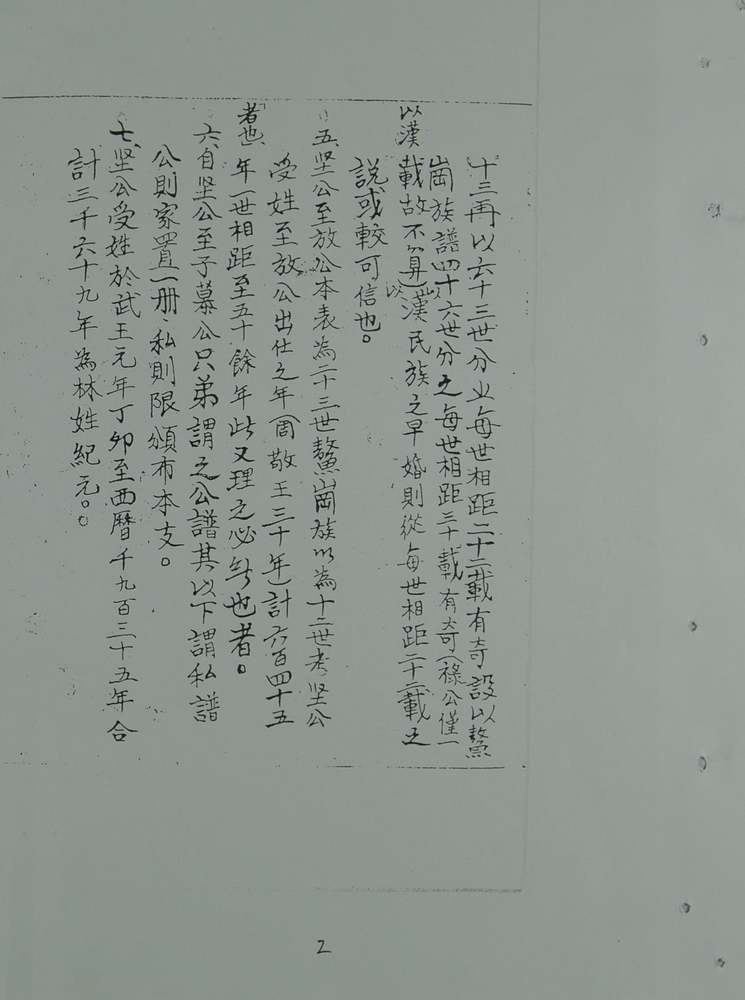 十三再以六十三世分之每世相距二十二載有奇設以鰲
崗族譜四十六世分之每世相距三十載有奇(祿公僅一
載故不算)以漢民族之早婚則從每世相距二十二載之
以漢
說或較可信也。
五、坚公至放公本表為二十三世鰲崗族以為十二世考坚公
受姓至放公出仕之年(周敬王三十年)計六百四十五
年一世相距至五十餘年此又理之必无也者。
者也
六、自坚公至子慕公只弟謂之公譜其以下謂私譜
公則家置一册私則限頒布本支。
七、坚公受姓於武王元年丁夘至西曆千九百三十五年合
計三千六十九年為林姓紀元。。
2